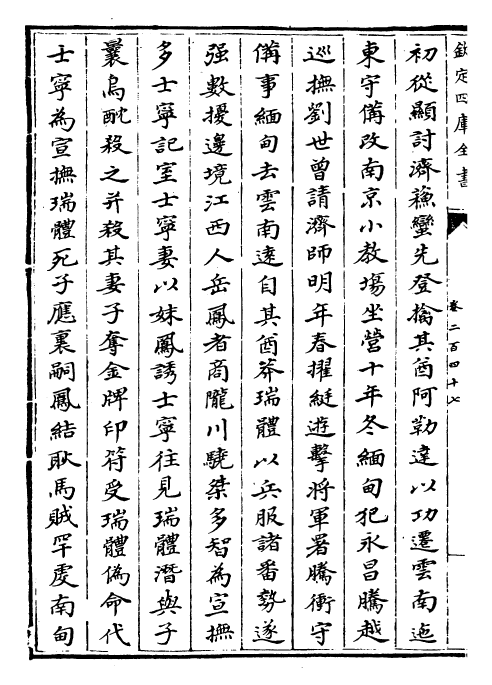 欽定四庫全書
卷二百四十七
初從顯討濟蘓蠻先登擒其酋阿勒達以功遷雲南迤
東守備改南京小教場坐營十年冬緬甸犯永昌騰越
巡撫劉世曾請濟師明年春擢綎遊擊將軍署騰衝守
備事緬甸去雲南逺自其酋莽瑞體以兵服諸番勢遂
强數擾邊境江西人岳鳳者商隴川驍桀多智為宣撫
多士寧記室士寧妻以妹鳳誘士寧往見瑞體潛與子
曩烏酖殺之并殺其妻子奪金牌印符受瑞體偽命代
士寧為宣撫瑞體死子應裏嗣鳳結耿馬賊罕䖍南甸